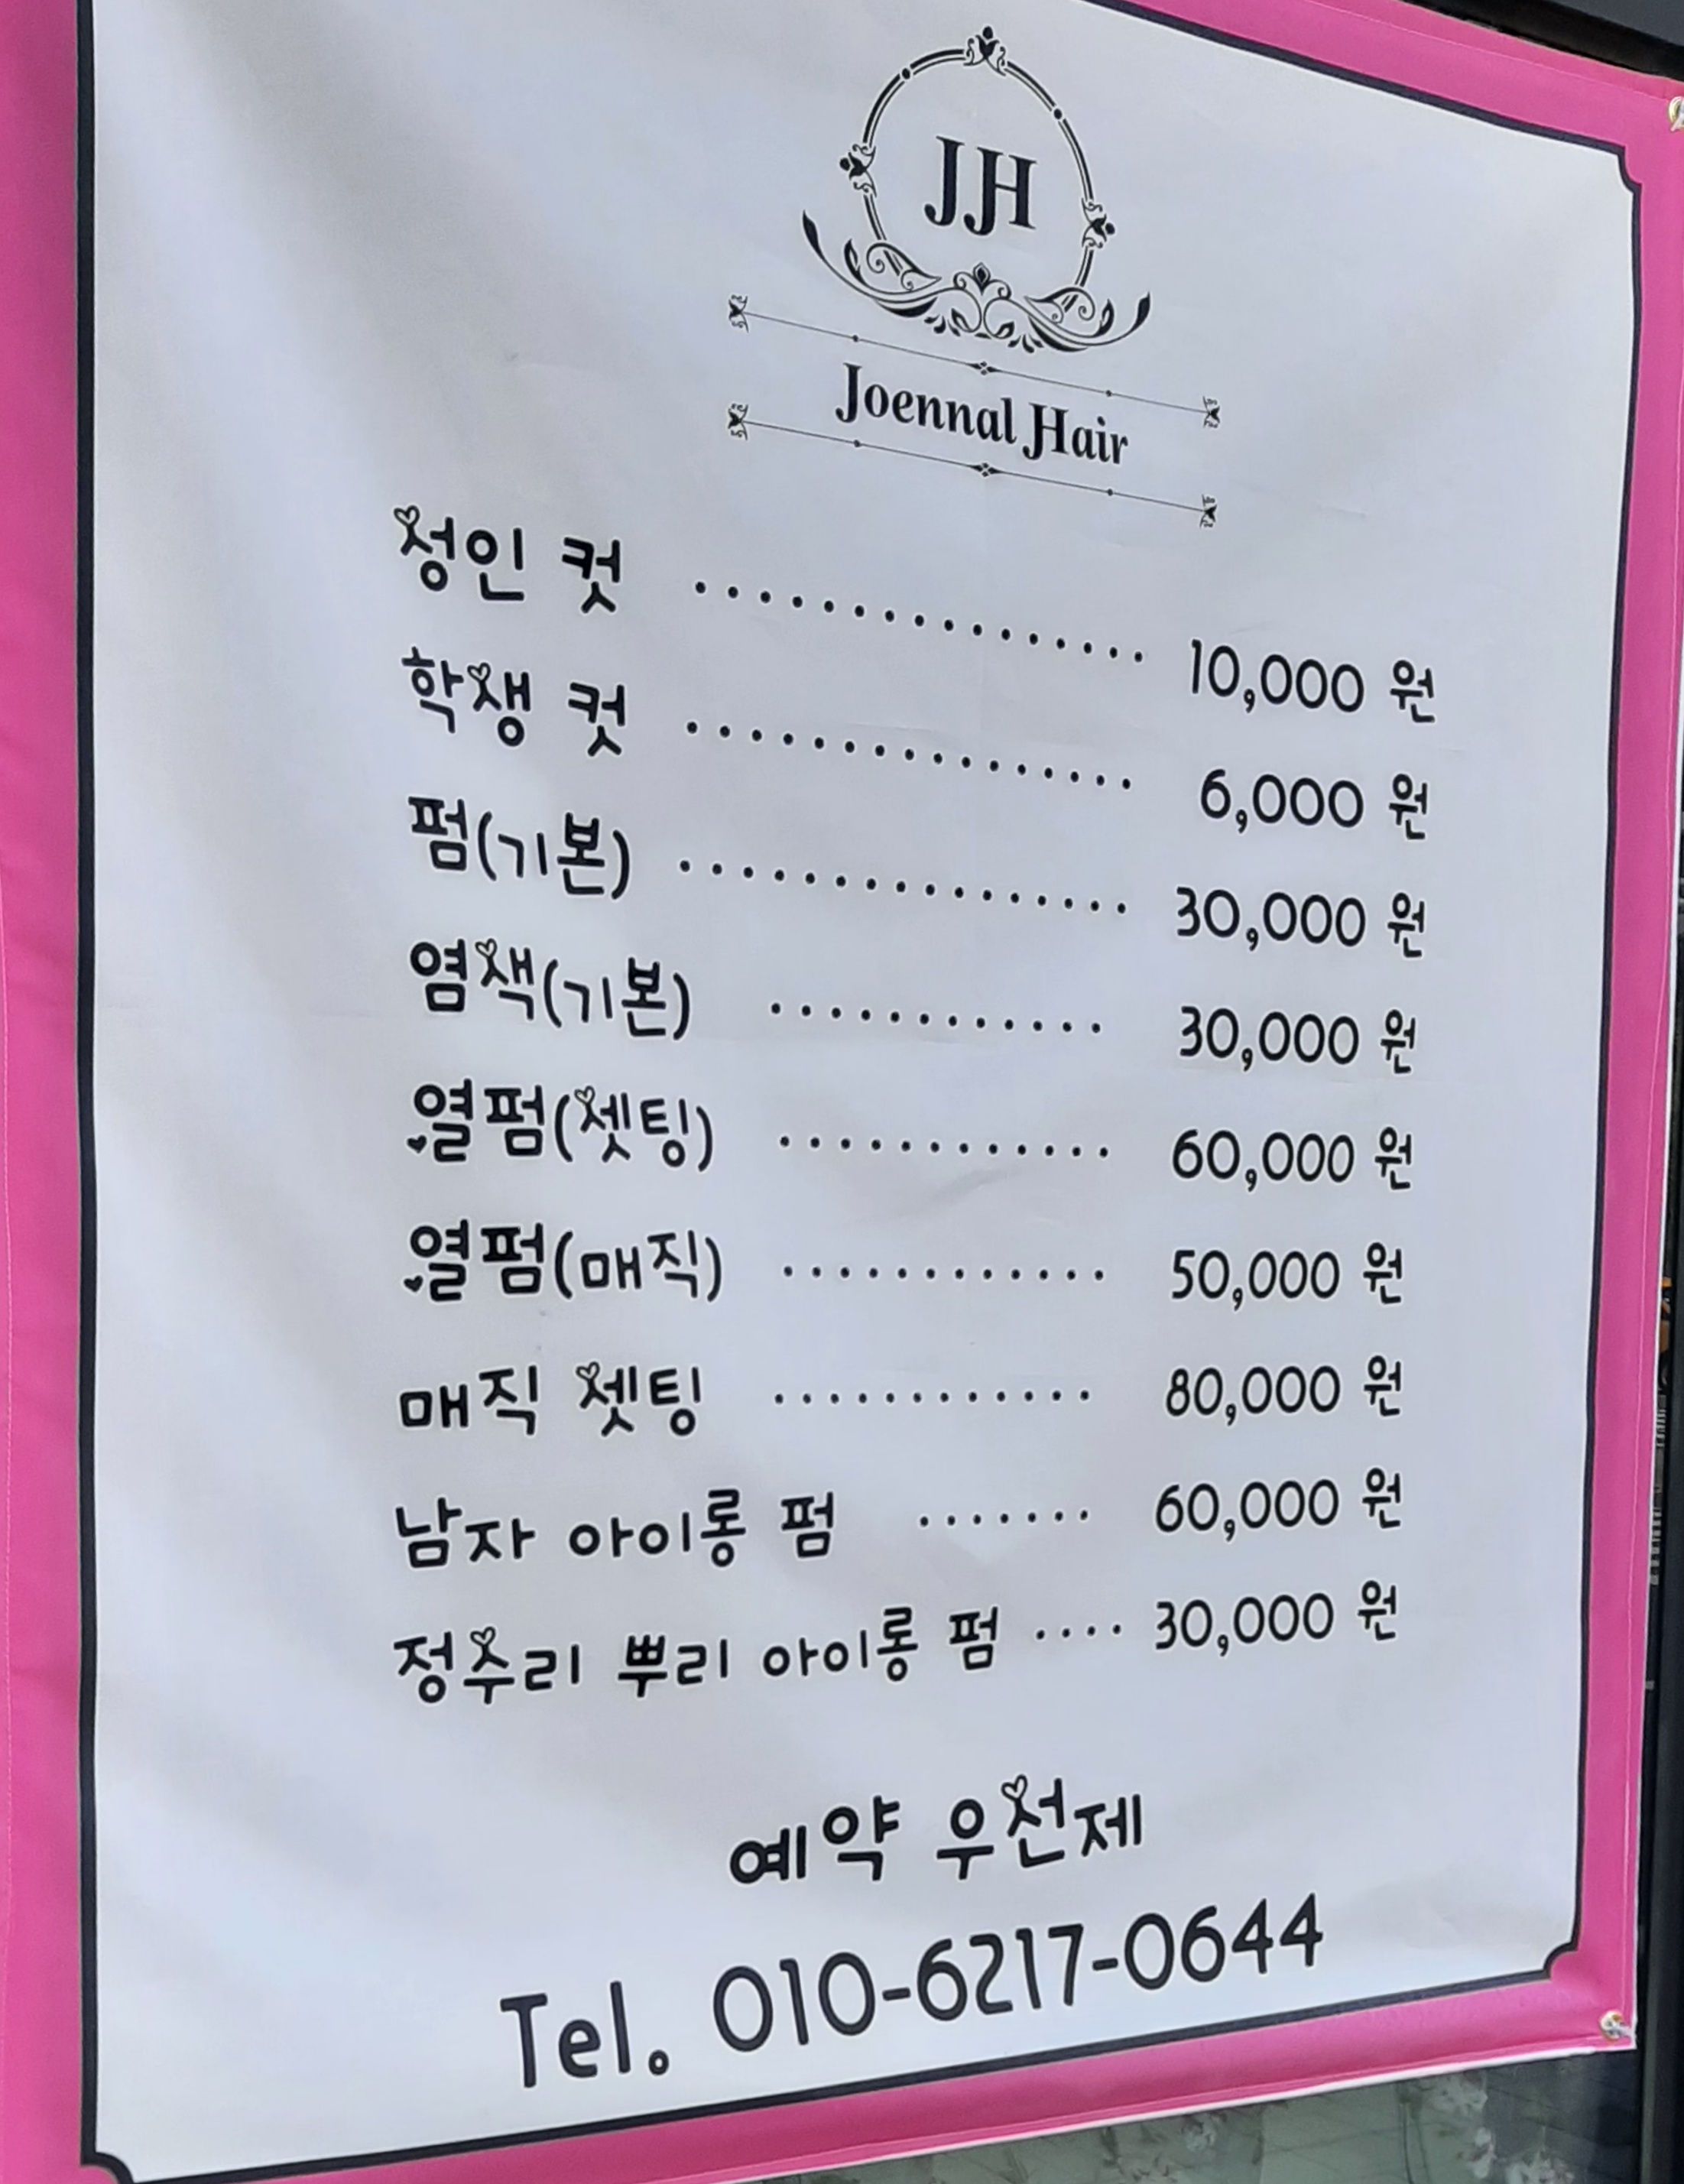 JJH
Joennal Hair
성인 컷 ............... 10,000 원
학생 컷 ............... 6,000 원
펌(기본) ............... 30,000 원
염색(기본) ............ 30,000 원
열펌(셋팅) ............ 60,000 원
열펌(매직) ............ 50,000 원
매직 셋팅 ............ 80,000 원
남자 아이롱 펌 ....... 60,000 원
정수리 뿌리 아이롱 펌 .... 30,000 원
예약 우선제
Tel. 010-6217-0644